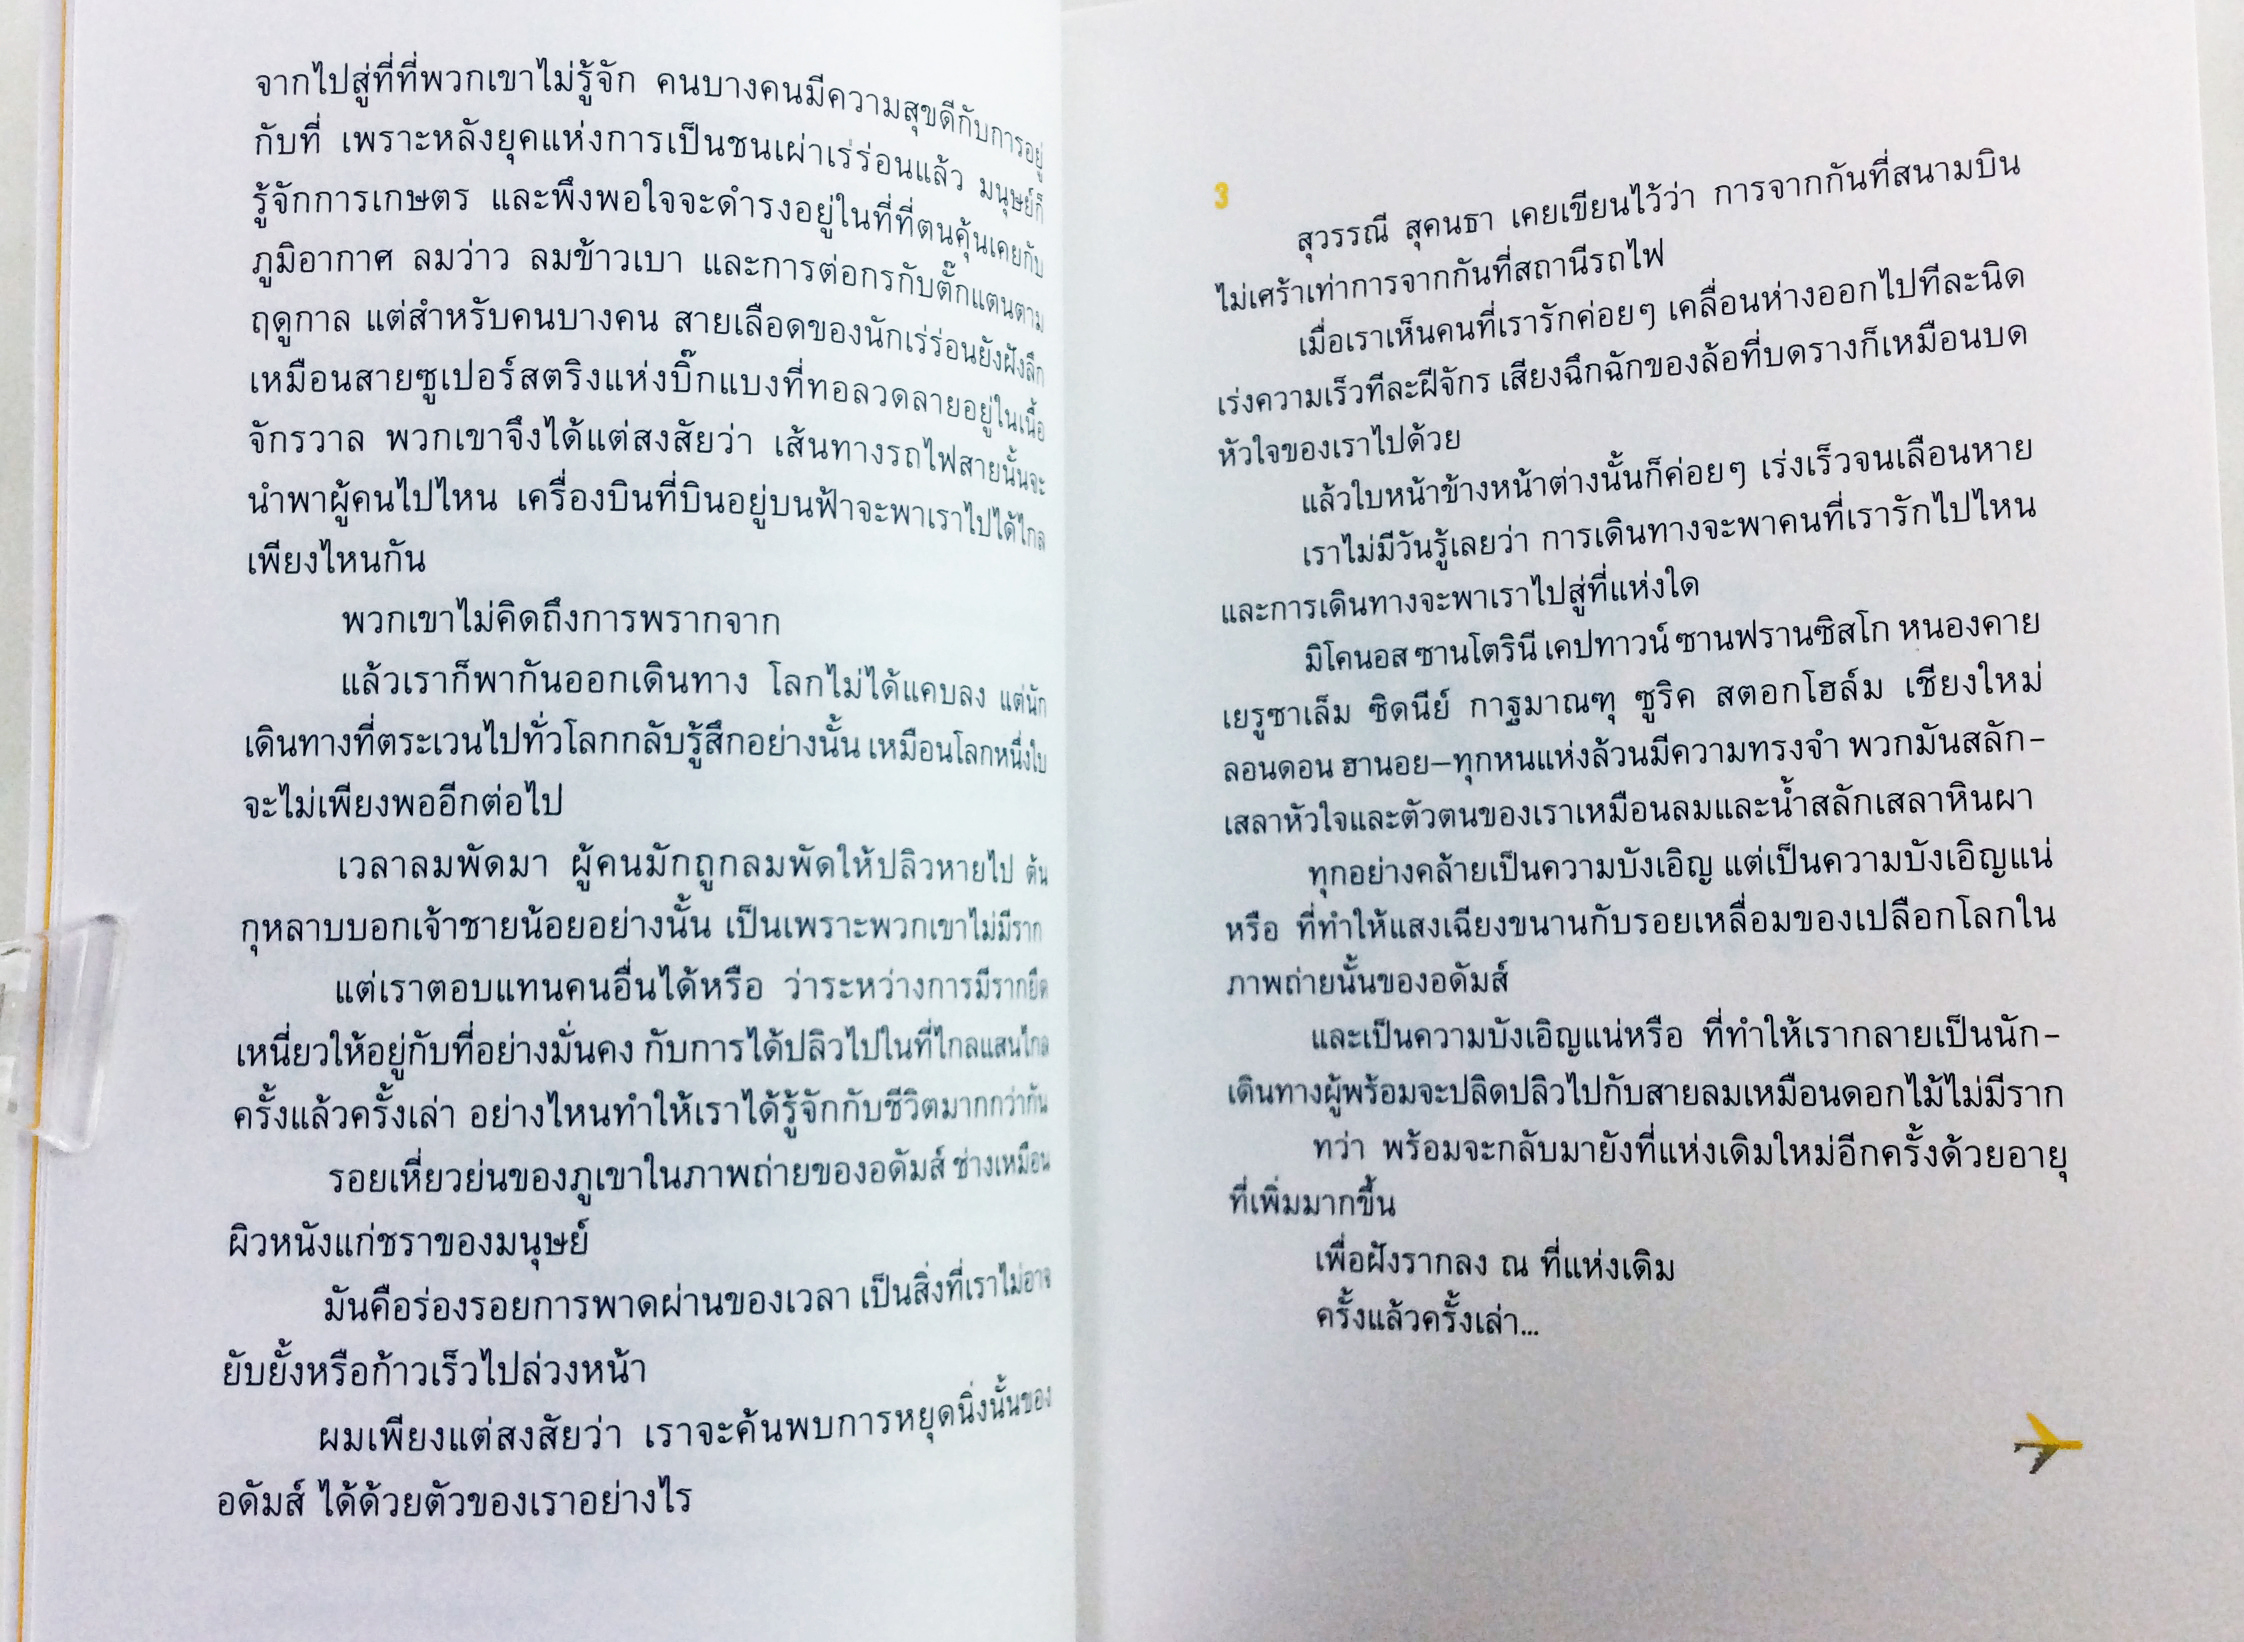 จากไปสู่ที่ที่พวกเขาไม่รู้จัก คนบางคนมีความสุขดีกับการอยู่
กับที่ เพราะหลังยุคแห่งการเป็นชนเผ่าเร่ร่อนแล้ว มนุษย์ก็
รู้จักการเกษตร และพึงพอใจจะดำรงอยู่ในที่ที่ตนคุ้นเคยกับ
ภูมิอากาศ ลมว่าว ลมข้าวเบา และการต่อกรกับตั๊กแตนตาม
ฤดูกาล แต่สำหรับคนบางคน สายเลือดของนักเร่ร่อนยังฝังลึก
เหมือนสายซูเปอร์สตริงแห่งบิ๊กแบงที่ทอลวดลายอยู่ในเนื้อ
จักรวาล พวกเขาจึงได้แต่สงสัยว่า เส้นทางรถไฟสายนั้นจะ
นำพาผู้คนไปไหน เครื่องบินที่บินอยู่บนฟ้าจะพาเราไปได้ไกล
เพียงไหนกัน
พวกเขาไม่คิดถึงการพรากจาก
แล้วเราก็พากันออกเดินทาง โลกไม่ได้แคบลง แต่นัก
เดินทางที่ตระเวนไปทั่วโลกกลับรู้สึกอย่างนั้น เหมือนโลกหนึ่งใบ
จะไม่เพียงพออีกต่อไป
เวลาลมพัดมา ผู้คนมักถูกลมพัดให้ปลิวหายไป ต้น
กุหลาบบอกเจ้าชายน้อยอย่างนั้น เป็นเพราะพวกเขาไม่มีราก
แต่เราตอบแทนคนอื่นได้หรือ ว่าระหว่างการมีรากยึด
เหนี่ยวให้อยู่กับที่อย่างมั่นคง กับการได้ปลิวไปในที่ไกลแสนไกล
ครั้งแล้วครั้งเล่า อย่างไหนทำให้เราได้รู้จักกับชีวิตมากกว่ากัน
รอยเหี่ยวย่นของภูเขาในภาพถ่ายของอดัมส์ ช่างเหมือน
ผิวหนังแก่ชราของมนุษย์
มันคือร่องรอยการพาดผ่านของเวลา เป็นสิ่งที่เราไม่อาจ
ยับยั้งหรือก้าวเร็วไปล่วงหน้า
ผมเพียงแต่สงสัยว่า เราจะค้นพบการหยุดนิ่งนั้นของ
อดัมส์ ได้ด้วยตัวของเราอย่างไร
3
สุวรรณี สุคนธา เคยเขียนไว้ว่า การจากกันที่สนามบิน
ไม่เศร้าเท่าการจากกันที่สถานีรถไฟ
เมื่อเราเห็นคนที่เรารักค่อยๆ เคลื่อนห่างออกไปทีละนิด
เร่งความเร็วทีละฝีจักร เสียงฉึกฉักของล้อที่บดรางก็เหมือนบด
หัวใจของเราไปด้วย
แล้วใบหน้าข้างหน้าต่างนั้นก็ค่อยๆ เร่งเร็วจนเลือนหาย
เราไม่มีวันรู้เลยว่า การเดินทางจะพาคนที่เรารักไปไหน
และการเดินทางจะพาเราไปสู่ที่แห่งใด
มิโคนอส ซานโตรินี เคปทาวน์ ซานฟรานซิสโก หนองคาย
เยรูซาเล็ม ซิดนีย์ กาฐมาณฑุ ซูริค สตอกโฮล์ม เชียงใหม่
ลอนดอน ฮานอย—ทุกหนแห่งล้วนมีความทรงจำ พวกมันสลัก-
เสลาหัวใจและตัวตนของเราเหมือนลมและน้ำสลักเสลาหินผา
ทุกอย่างคล้ายเป็นความบังเอิญ แต่เป็นความบังเอิญแน่
หรือ ที่ทำให้แสงเฉียงขนานกับรอยเหลื่อมของเปลือกโลกใน
ภาพถ่ายนั้นของอดัมส์
และเป็นความบังเอิญแน่หรือ ที่ทำให้เรากลายเป็นนัก-
เดินทางผู้พร้อมจะปลิดปลิวไปกับสายลมเหมือนดอกไม้ไม่มีราก
ทว่า พร้อมจะกลับมายังที่แห่งเดิมใหม่อีกครั้งด้วยอายุ
ที่เพิ่มมากขึ้น
เพื่อฝังรากลง ณ ที่แห่งเดิม
ครั้งแล้วครั้งเล่า...